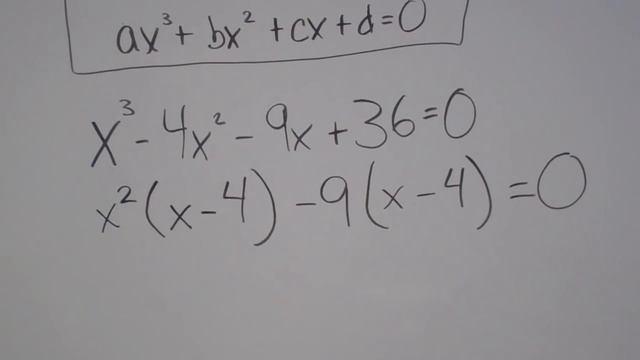 ax³ + bx² + cx + d = 0
x³ - 4x² - 9x + 36 = 0
x²(x - 4) - 9(x - 4) = 0